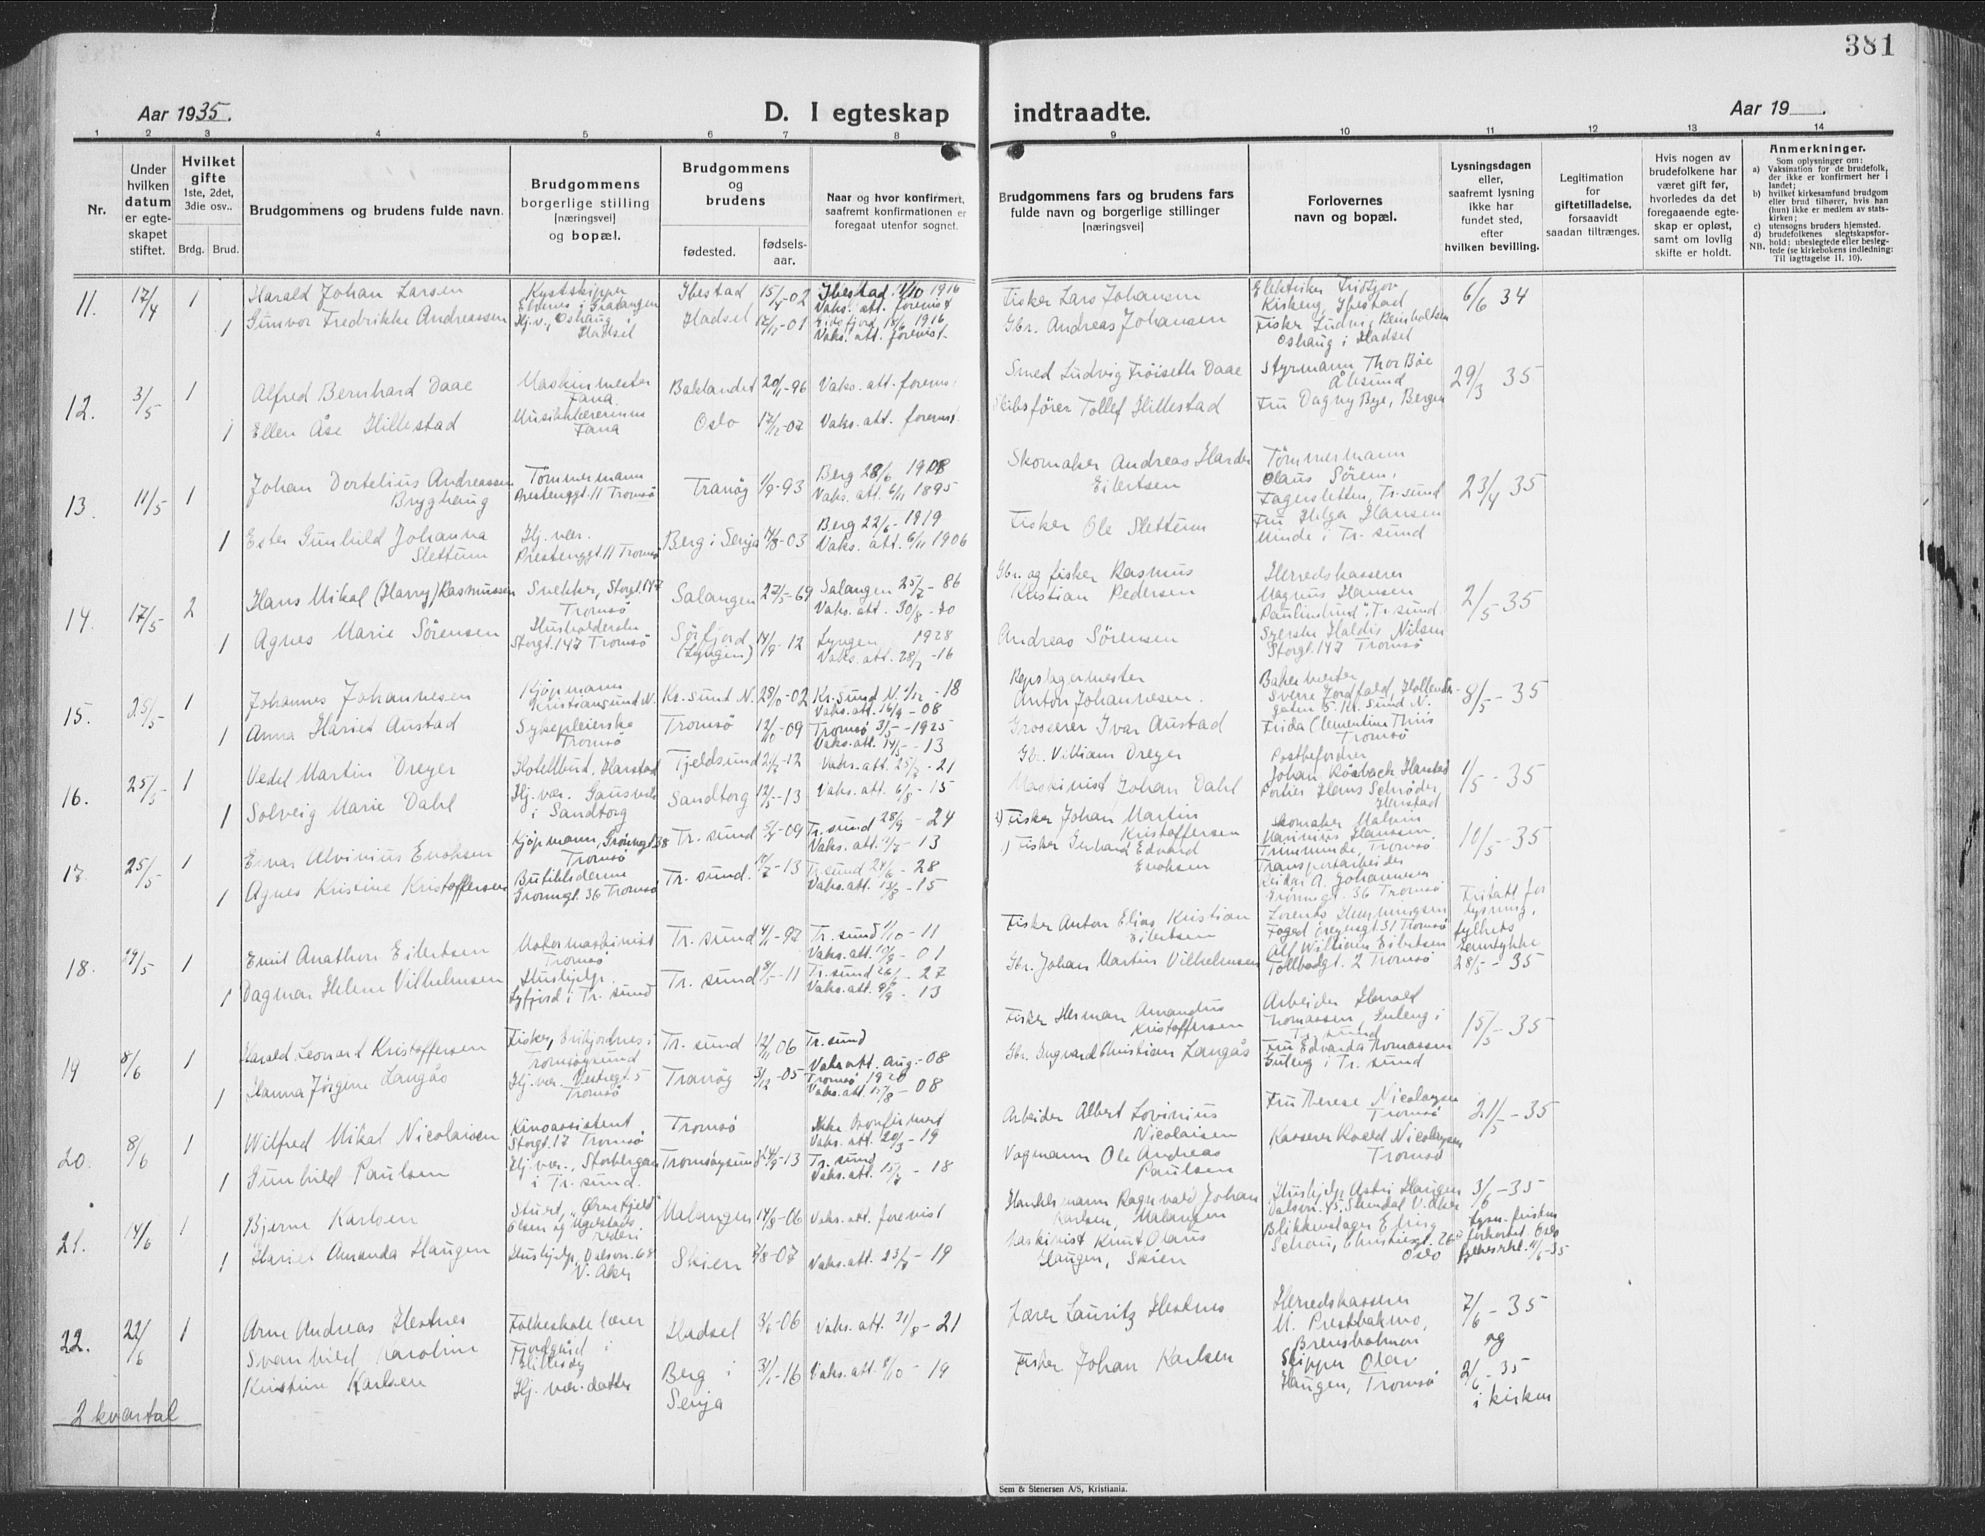 381
Aar 1935.
D. I egteskap indtraadte.
Aar 19
1 2 3 4 5 6 7 8 9 10 11 12 13 14
Nr.
Under hvilken datum er egte-skapet stiftet.
Hvilket gifte 1ste, 2det, 3die osv..
Brdg. Brud.
Brudgommens og brudens fulde navn.
Brudgommens borgerlige stilling [næringsvei] og bopæl.
Brudgommens og brudens
fødested. fødsels-aar.
Naar og hvor konfirmert, saafremt konfirmationen er foregaat utenfor sognet.
Brudgommens fars og brudens fars fulde navn og borgerlige stillinger [næringsvei]
Forlovernes navn og bopæl.
Lysningsdagen eller, saafremt lysning ikke har fundet sted, efter hvilken bevilling.
Legitimation for giftetilladelse, forsaavidt saadan tiltrænges.
Hvis nogen av brudefolkene har været gift før, hvorledes da det foregaaende egte-skap er opløst, samt om lovlig skifte er holdt.
Anmerkninger.
Som oplysninger om:
a) Vaksination for de brudefolk, der ikke er konfirmert her i landet;
b) hvilket kirkesamfund brudgom eller brud tilhører, hvis han (hun) ikke er medlem av stats-kirken;
c) utensogns bruders hjemsted.
d) brudefolkenes slegtskapsfor-hold: ubeslegtede eller besleg-tede (se kirkebokens indledning: NB. Til iagttagelse II. 10).
11. 17/4 1 Harald Johan Larsen Kystskipper Ibestad 15/4-02 Ibestad 1/10 1916 Vaks. att. forevist Fisker Lars Johansen 6/6 34
1 Gunvor Fredrikke Andreassen Hj.v., Oshaug i Hadsel Hadsel 17/11-01 Eidsfjord 18/6 1916 Vaks. att. forevist. Gbr. Andreas Johansen Oshaug i Hadsel
12. 3/5 1 Alfred Bernhard Daae Maskinmester Fana Balelandet 20/11-96 Vaks. att. forevist Smed Ludvig Frøiseth Daae Styrmann Thor Bøe Ålesund 29/3 35
1 Ellen Åse Hillestad Musikklærerinne Fana Oslo 17/12-07 Vaks. att. forevist Skibsfører Tollef Hillestad Fru Dagny Bye, Bergen
13. 11/5 1 Johan Dortelius Andreassen Brygghaug Tømmermann Prestenggt. 11 Tromsø Tranøy 1/9-93 Berg 28/6 1908 Vaks. att. 6/11 1895 Skomaker Andreas Harder Eilertsen Tømmermann Olaus Sørens. Fagersletten, Tr.sund 23/4 35
1 Ester Gunhild Johanna Slettum Hj. vær. Prestenggt. 11 Tromsø Berg i Senja 7/8-03 Berg 22/6 1919 Vaks. att. 6/11 1906 Fisker Ole Slettum Fru Helga Hansen Minde i Tr. sund
14. 17/5 2 Hans Mikal (Harry) Rasmussen Snekker, Storgt. 147 Tromsø Salangen 27/5-69 Salangen 25/7-86 Vaks. att. 30/8-70 Gbr. og fisker Rasmus Kristian Pedersen Herredskasserer Magnus Hansen "Paulinelund", Tr. sund 2/5-35
1 Agnes Marie Sørensen Husholderske Storgt. 147 Tromsø Sørfjord (Lyngen) 14/9-12 Lyngen 1928 Vaks. att. 28/7-16 Andreas Sørensen Syerske Haldis Nilsen Storgt. 147 Tromsø
15. 25/5 1 Johannes Johannesen Kjøpmann Kristiansund N. Kr. sund N. 28/10-02 Kr. sund N. 1/12-18 Vaks. att. 16/9-08 Repslagermester Anton Johannesen. Bakermester Sverre Jordfald, Hollender-gaten 5. Kr. sund N. 8/5-35
1 Anna Hariet Austad Sykepleierske Tromsø Tromsø 12/10-09 Tromsø 3/5-1925 Vaks. att. 14/5-13 Grosserer Ivar Austad Frida Clementine Thiis Tromsø
16. 25/5 1 Vedel Martin Dreyer Hotellbud, Harstad Tjeldsund 21/2-12 Vaks. att. 25/7-21 Gbr. Villiam Dreyer Postbefordrer Johan Rösbach Harstad 1/5-35
1 Solveig Marie Dahl Hj. vær. i Sandtorg Sandtorg 12/5-13 Vaks. att. 6/8-15 Maskinist Johan Dahl Portier Hans Schrøder, Harstad
17. 25/5 1 Einar Alvinius Enoksen Kjøpmann, Grønngt. 38 Tromsø Tr. sund 5/4-09 Tr. sund 28/9-24 Vaks. att. 7/7-13 2) Fisker Johan Martin Kristoffersen Skomaker Malvin Marinius Hanssen, Tromsø 10/5-35
1 Agnes Kristine Kristoffersen Butikkdame Grønngt. 36 Tromsø Tr. sund. 14/2-13 Tr. sund 24/6-28 Vaks. att. 13/8-15 1) Fisker Gerhard Edvard Enoksen Transportarbeider Reidar A. Johannesen Grønngt. 36 Tromsø
18. 29/5 1 Emil Anathon Eilertsen Motormaskinist Tromsø Tr. sund 4/11-97 Tr. sund 1/10-11 Vaks. att. 10/9-01 Fisker Anton Elias Kristian Eilertsen Lorents Hemmingsen Foged Dreyersgt. 31 Tromsø Fritatt for lysning, fylkets samtykke 28/5-35
1 Dagmar Helene Vilhelmsen Hushjelp. i Tr. sund Tr. sund 8/5-11 Tr. sund 26/6-27 Vaks. att. 9/9-13 Gbr. Johan Martin Vilhelmsen Alf William Eilertsen Tollbodgt. 2 Tromsø
19 8/6 1 Harald Leonard Kristoffersen Fisker, i Tromsøysund Tr. sund 12/11 06 Tr. sund Vaks att. Aug.-08 Fisker Herman Amandus Kristoffersen Arbeider Harald Tomassen, Guleng i Tr. sund 15/5-35
1 Hanna Jørgine Langås Hj. vær. Vestregt. 5 Tromsø Tranøy 3/12-05 Tromsø 1920 Vaks. att. 17/8-08 Gbr. Ingvard Christian Langås Fru Edvarda Thomassen Guleng i Tr. sund
20. 8/6 1 Wilfred Mikal Nicolaisen Kinoassistent Storgt. 17 Tromsø Tromsø Ikke konfirmert Vaks. att. 20/3-19 Arbeider Albert Lovinius Nicolaisen Fru Therese Nicolaysen Tromsø 21/5-35
1 Gunhild Paulsen Hj. vær., Storbergan i Tr. sund. Tromsøysund 24/9-13 Tr. sund Vaks. att. 15/7-18 Vognmann Ole Andreas Paulsen Kasserer Roald Nicolaysen Tromsø
21. 14/6 1 Bjarne Karlsen Stuert, "Ørnefjell" Olsen og Ugelstads rederi Malangen 14/8-06 Vaks. att. forevist Handelsmann Ragnvald Johan Karlsen, Malangen Hushjelp Astri Haugen 3/6-35
1 Hariet Amanda Haugen Hushjelp, Dalsvn. 68 V. Aker Skien 7/8-07 Vaks. att. 23/7-19 Maskinist Knut Olaus Haugen, Skien Blikkenslager Erling Schou, Christiesgt. 26 Oslo lysn. fristen forkortet Oslo 11/6-35
22. 22/6 1 Arne Andreas Hestnes Folkeskolelærer Fjordgård i Hillesøy Hadsel 3/6-06 Vaks. att. 31/8-21 Lærer Lauritz Hestnes Herredskasserer M. Prestbakmo, Brensholmen 7/6-35 og
Svanhild Karoline Kristine Karlsen Hj. vær. datter Berg i Senja 3/1-16 Vaks. att. 8/10-19 Fisker Johan Karlsen Skipper Olav Haugen, Tromsø 2/6-35 i kirken
2 kvartal
Sem & Stenersen A/S, Kristiania.